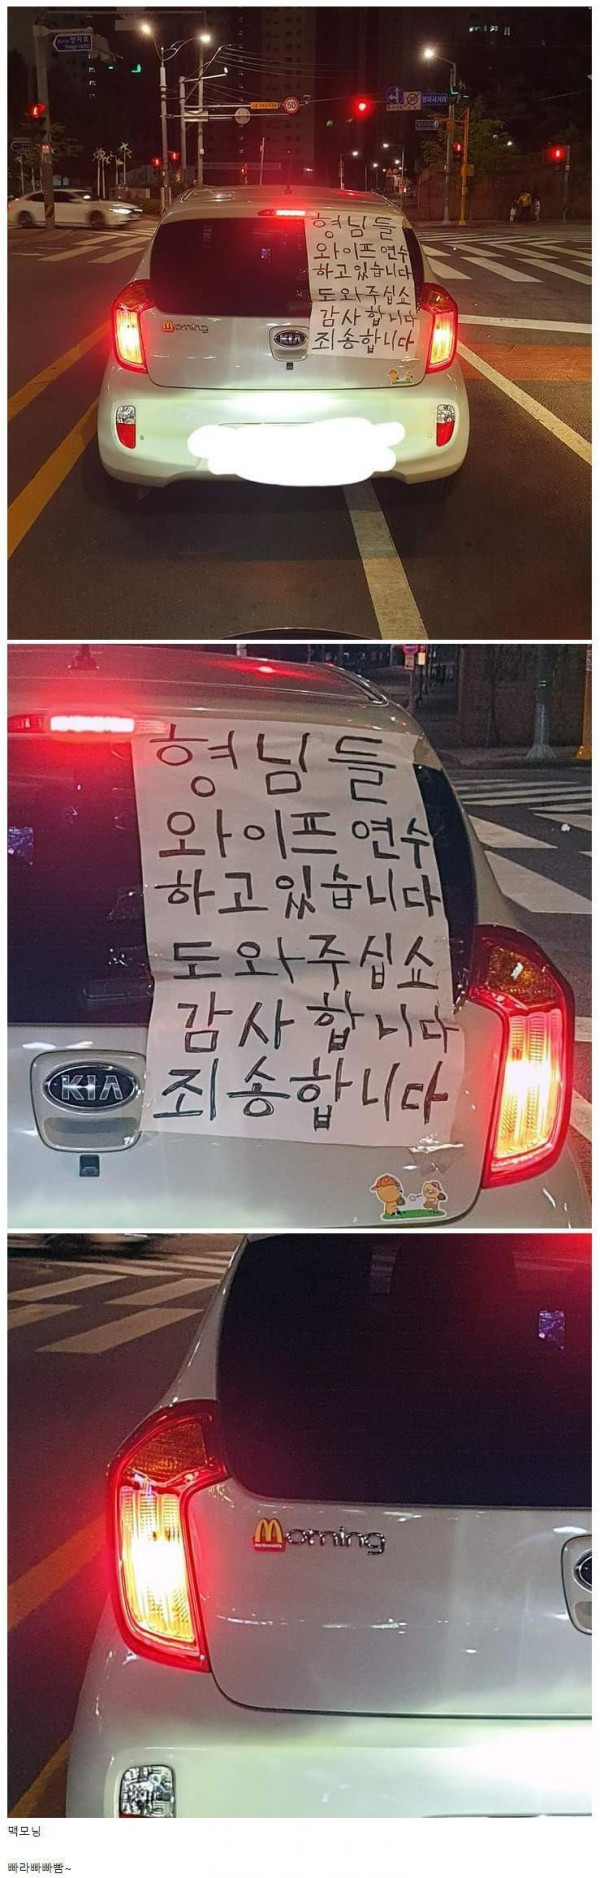 50
형님들
와이프 연수
하고있습니다
도와주십쇼
감사합니다
죄송합니다
Morning
KIA
형님들
와이프 연수
하고있습니다
도와주십쇼
감사합니다
죄송합니다
KIA
Morning
맥모닝
빠라빠빠빰~